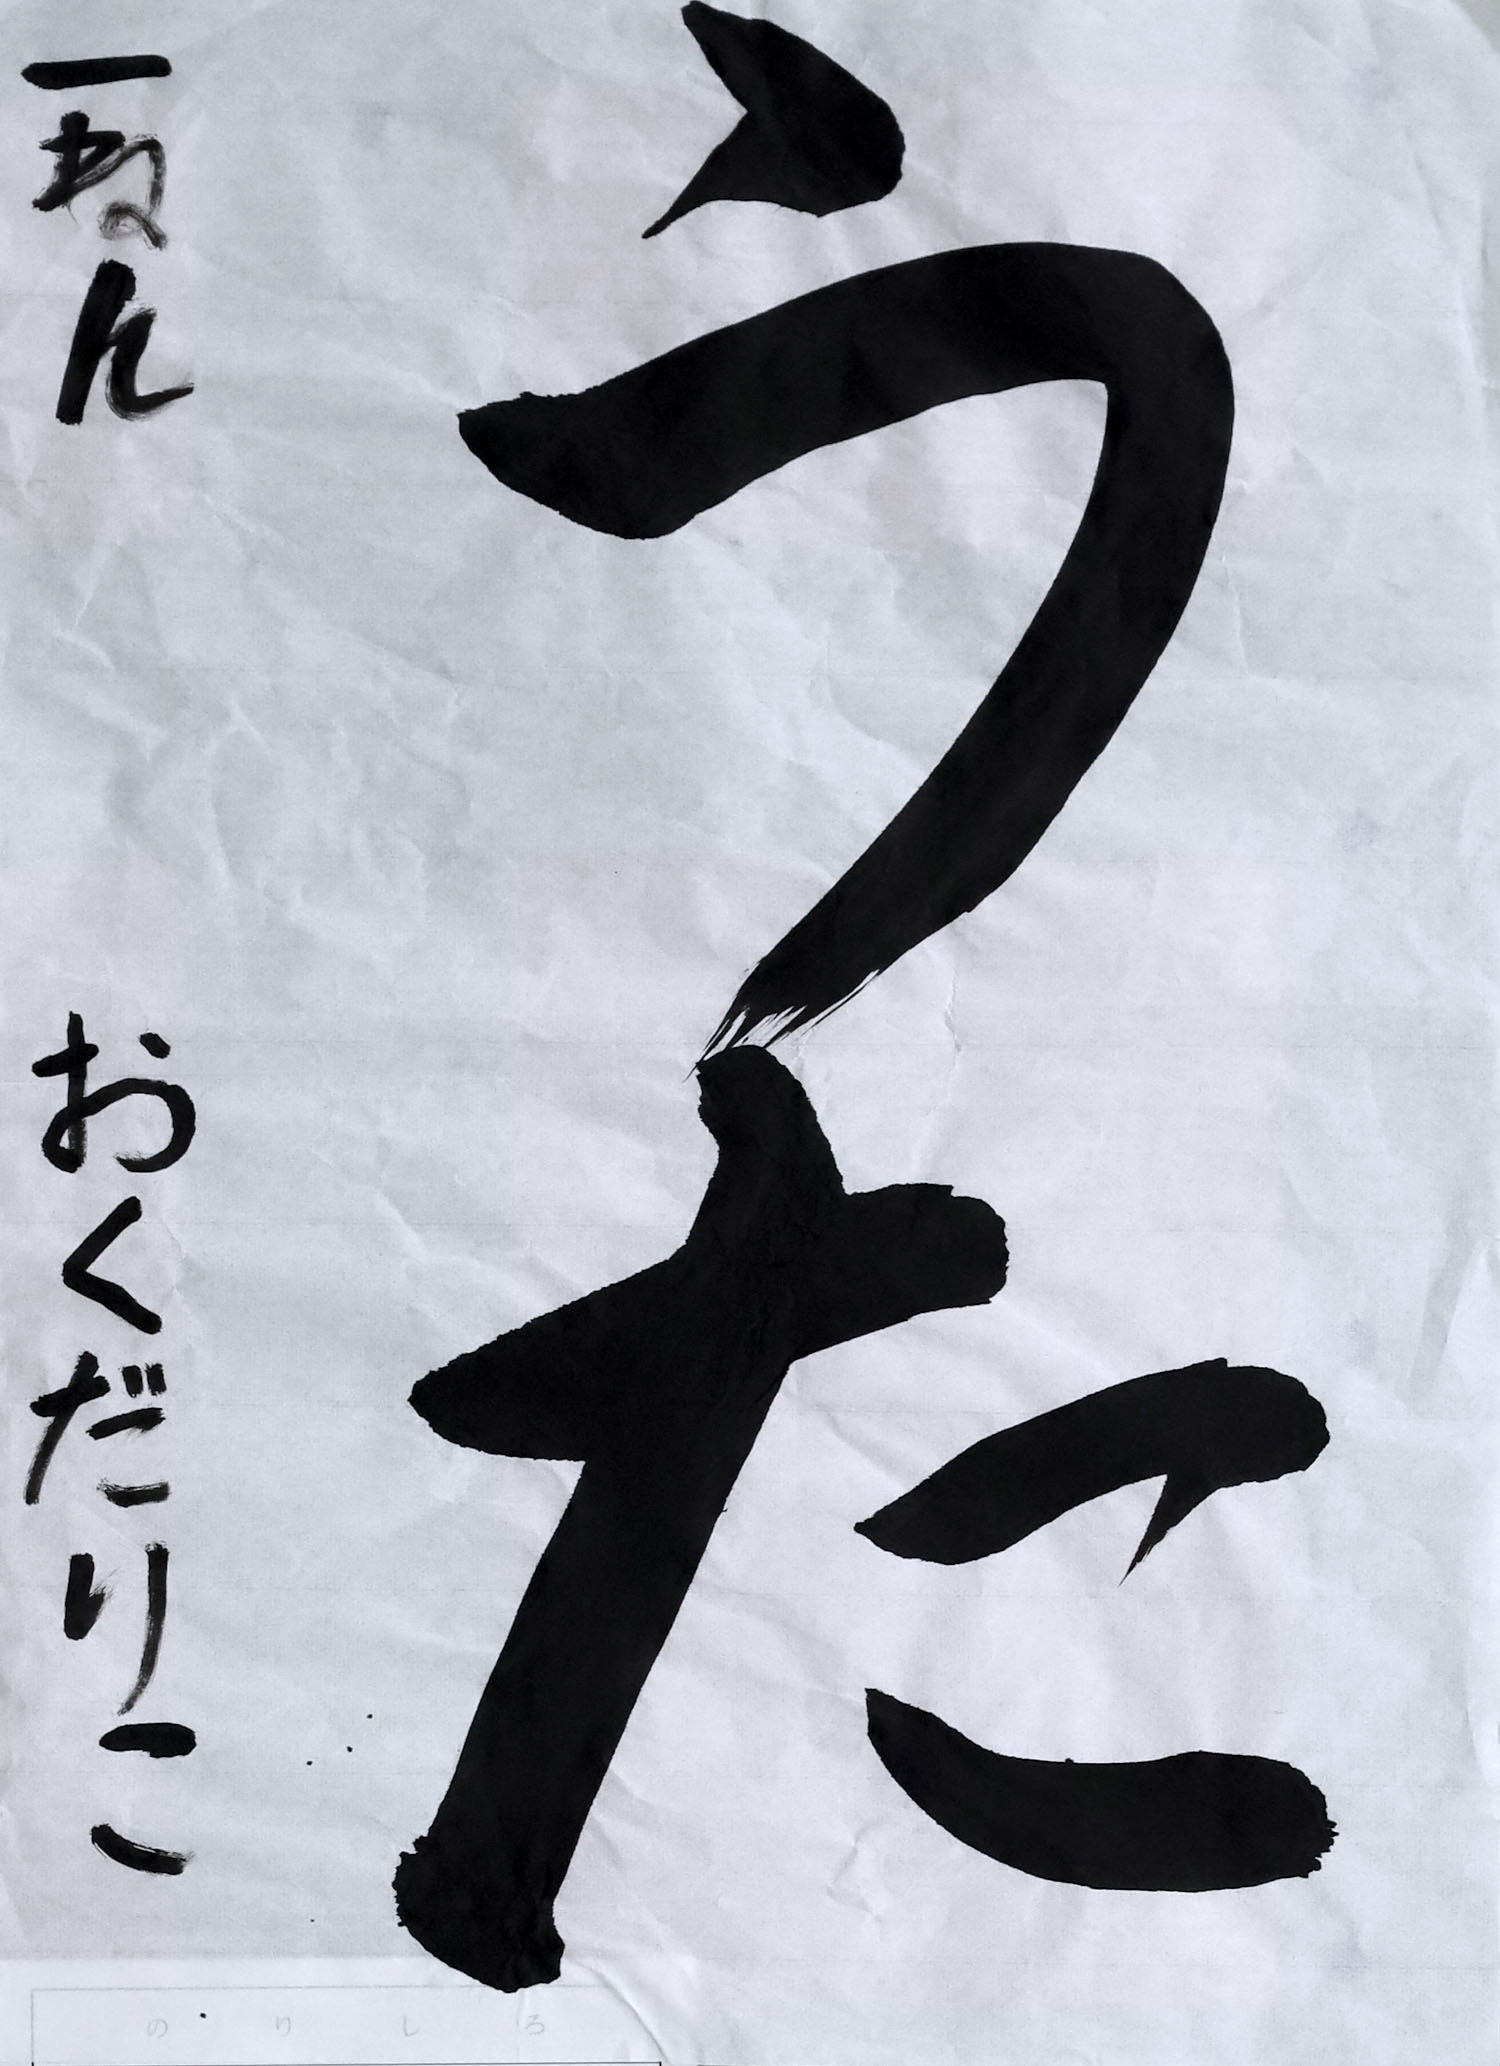 うた
一ねん おくだりこ
のりしろ